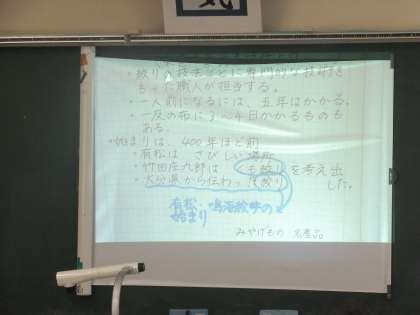 気
・絞りの技法などに専門的な技術を
もった職人が担当する。
・一人前になるには、五年はかかる。
・一反の布に3〜4日かかるものも
ある。
・始まりは、400年ほど前
・有松は さびしい場所
・竹田庄九郎は くも絞り を考え出した。
・大分県から伝わった絞り
有松・鳴海絞りの
始まり
みやげもの 名産品